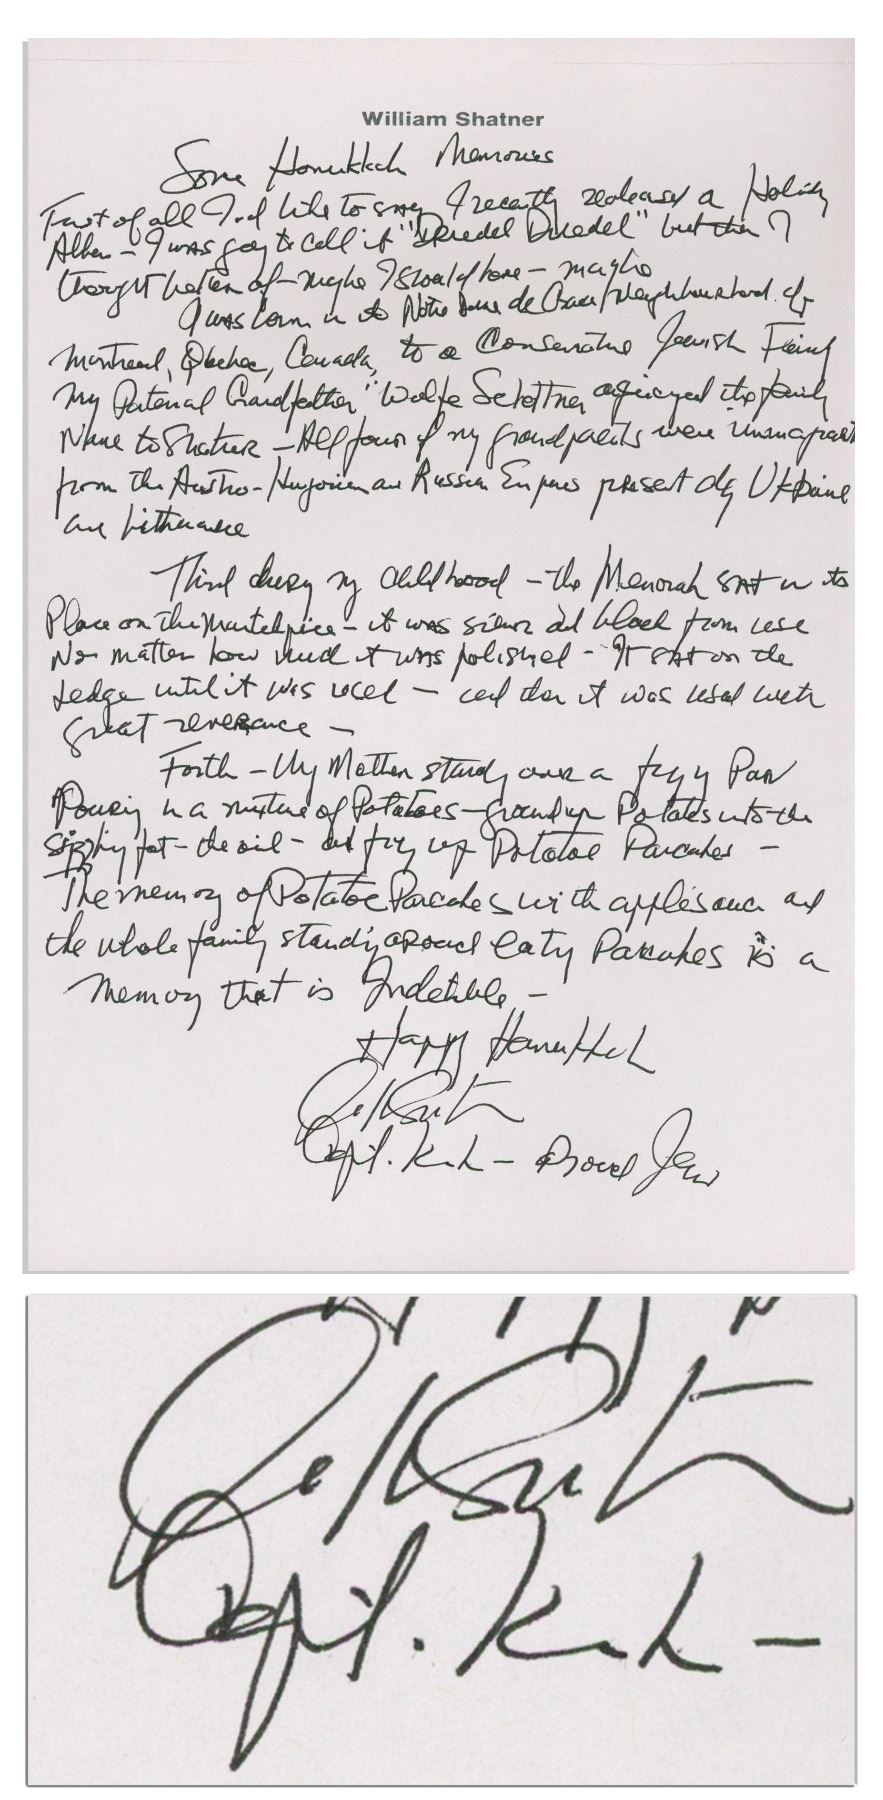 William Shatner
Some Hanukkah Memories
First of all I'd like to say I recently released a Holiday
Album – I was going to call it "Dreidel Dreidel" but then I
thought better of – maybe I should have – maybe
I was born in to Notre Dame de Grace/Neighbourhood of
Montreal, Quebec, Canada, to a Conservative Jewish Family
My Paternal Grandfather "Wolfe Schattner anglicized the family
Name to Shatner – All four of my grandparents were immigrants
from the Austro-Hungarian and Russian Empires present day Ukraine
and Lithuania
Third during my childhood – the Menorah sat in its
Place on the Mantelpiece – it was silver and black from use
No matter how much it was polished – It sat on the
Ledge until it was used – and then it was used with
great reverance –
Forth – My Mother standing over a frying Pan
Pouring in a mixture of Potatoes – ground up Potatoes into the
sizzling fat – the oil – and frying up Potatoe Pancakes –
The memory of Potatoe Pancakes with applesauce and
the whole family standing around eating Pancakes is a
memory that is Indelible –
Happy Hanukkah
Capt. Kirk – Proud Jew
Capt. Kirk –